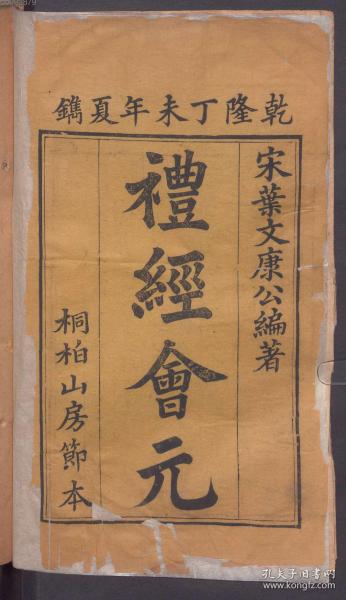 乾隆丁未年夏鐫
宋葉文康公編著
禮經會元
桐柏山房節本
孔夫子旧书网
www.kongfz.com